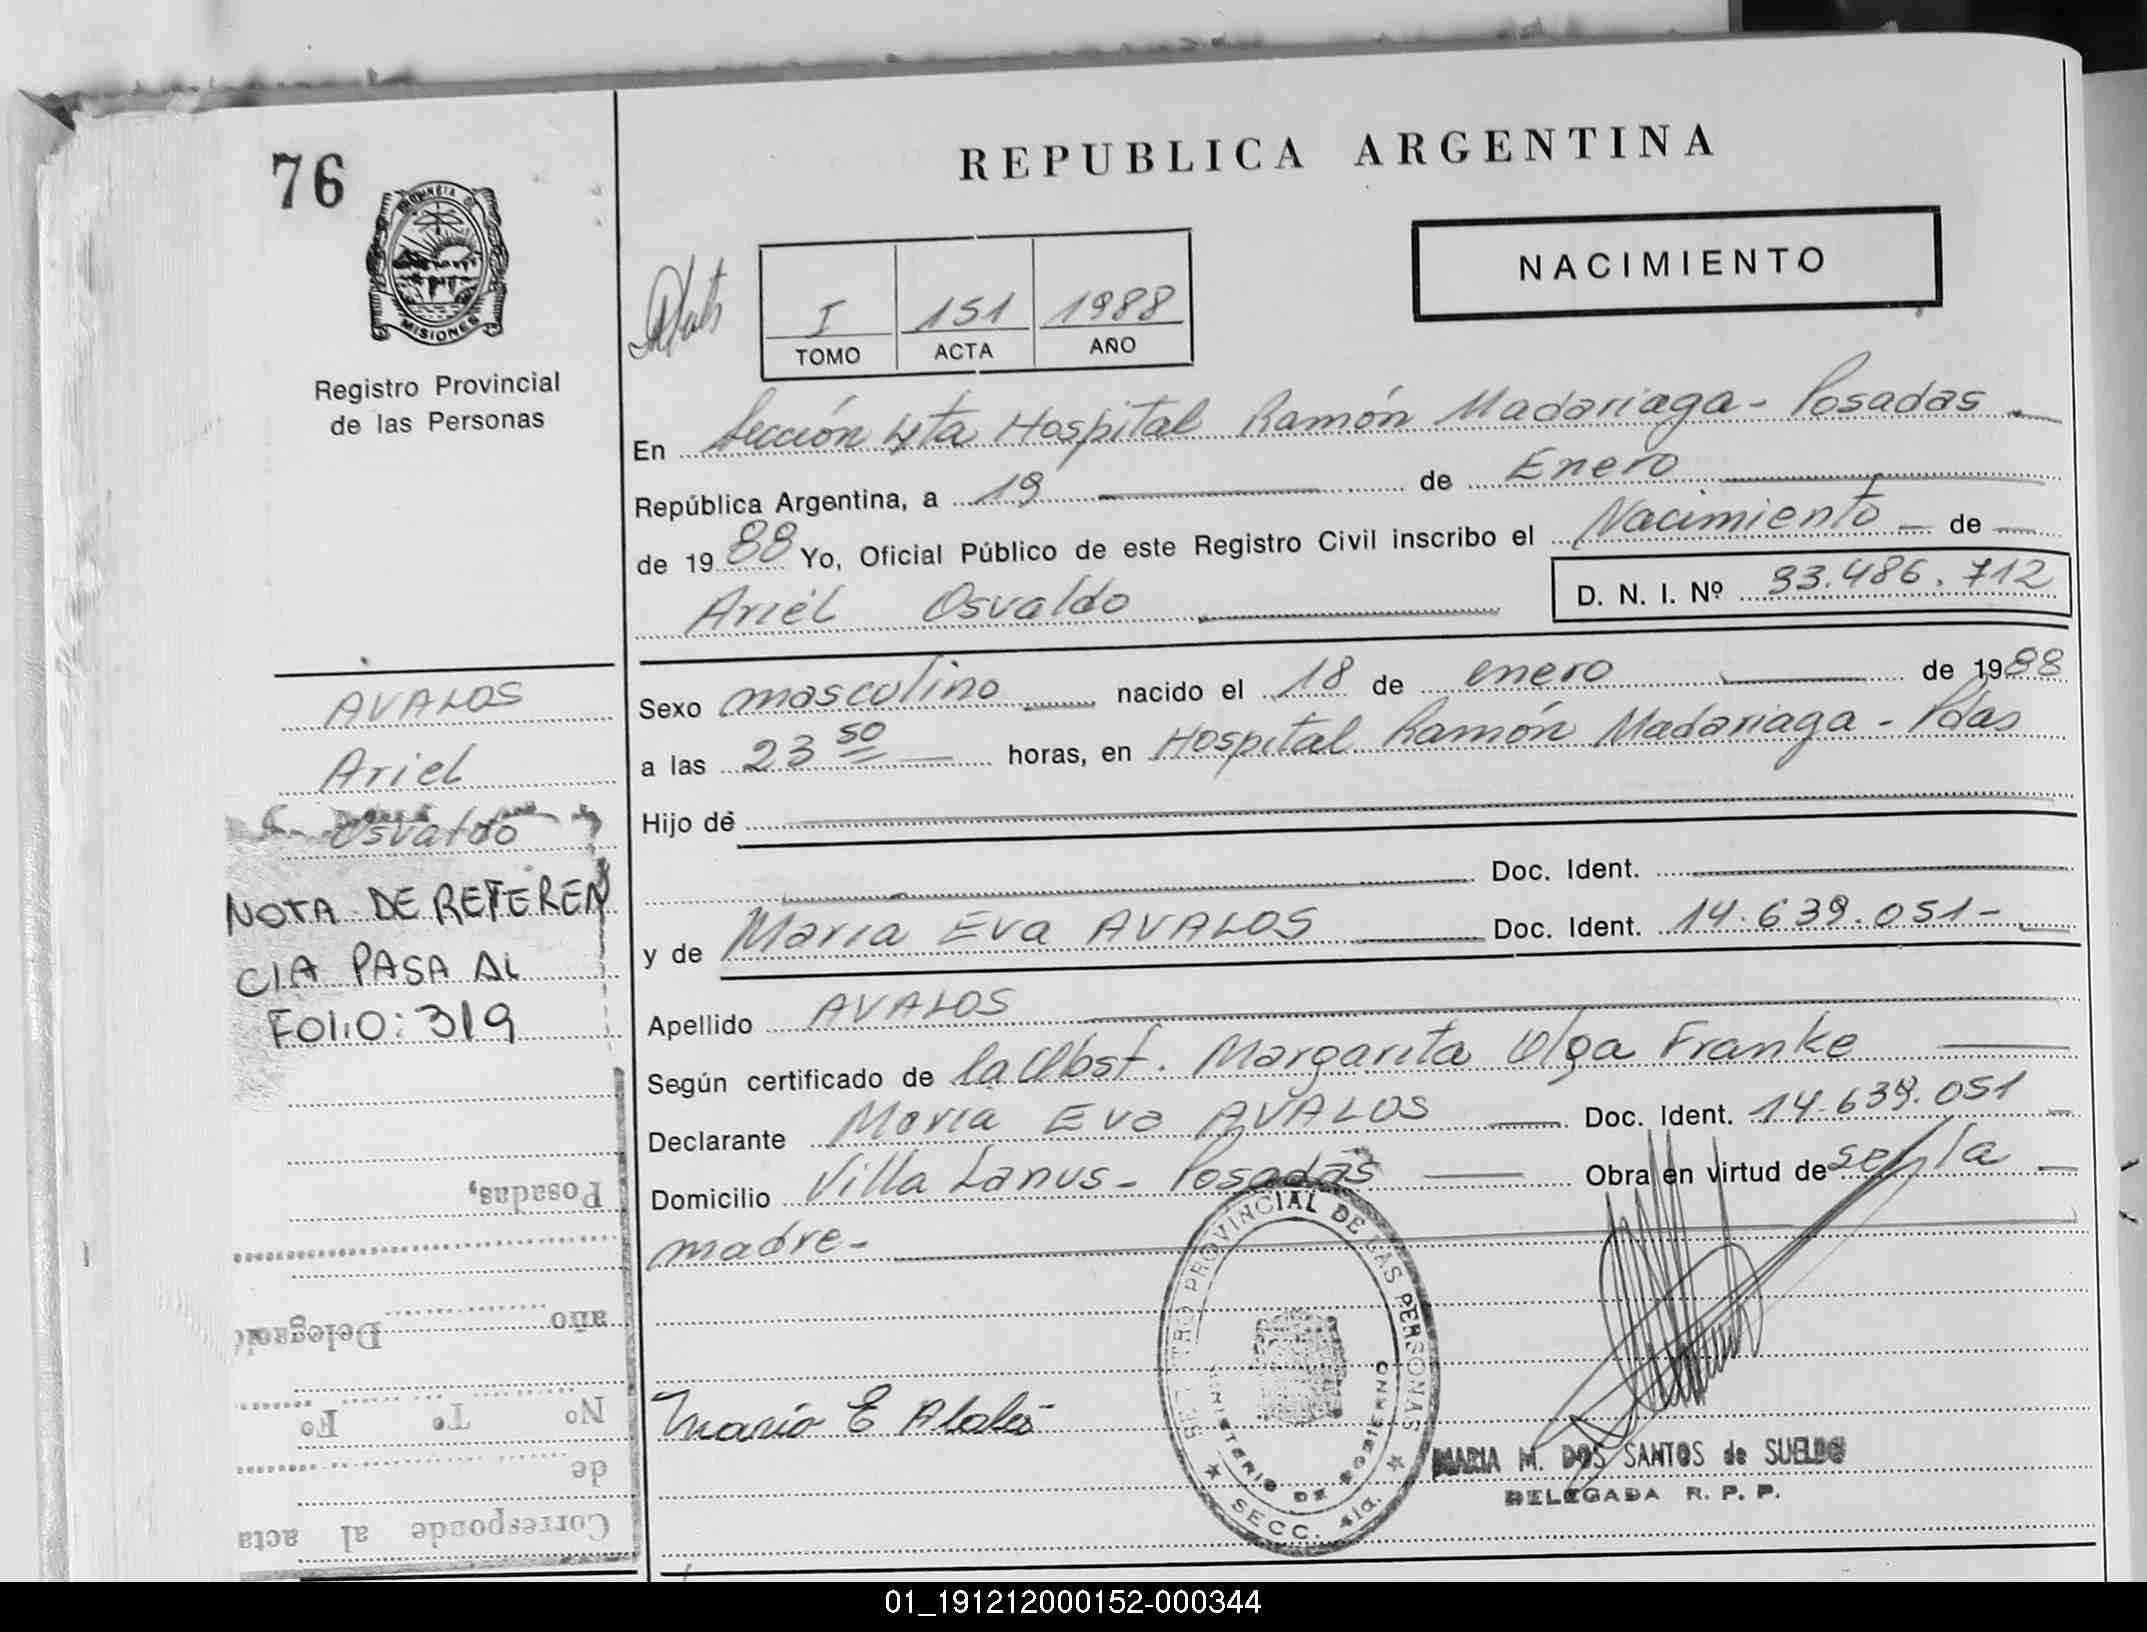 76
PROVINCIA DE
MISIONES
Registro Provincial
de las Personas
REPUBLICA ARGENTINA
NACIMIENTO
I 151 1988
TOMO ACTA AÑO
En Sección 4ta Hospital Ramón Madariaga - Posadas
República Argentina, a 19 de Enero
de 1988 Yo, Oficial Público de este Registro Civil inscribo el Nacimiento de
Ariel Osvaldo D. N. I. Nº 33.486.712
Sexo masculino nacido el 18 de enero de 1988
a las 23 50 horas, en Hospital Ramón Madariaga - Pdas
Hijo de
Doc. Ident.
y de Maria Eva AVALOS Doc. Ident. 14.639.051-
Apellido AVALOS
Según certificado de la Obst. Margarita Olga Franke
Declarante Maria Eva AVALOS Doc. Ident. 14.639.051
Domicilio Villa Lanus - Posadas Obra en virtud de ser la
madre -
AVALOS
Ariel
Osvaldo
NOTA DE REFEREN
CIA PASA AL
FOLIO: 319
Posadas,
año Delegació
Nº Tº Fº
de
Corresponde al acta
REGISTRO PROVINCIAL DE LAS PERSONAS
MINISTERIO DE GOBIERNO
SECC. 4ta.
MARIA M. DOS SANTOS de SUELDO
DELEGADA R. P. P.
01_191212000152-000344